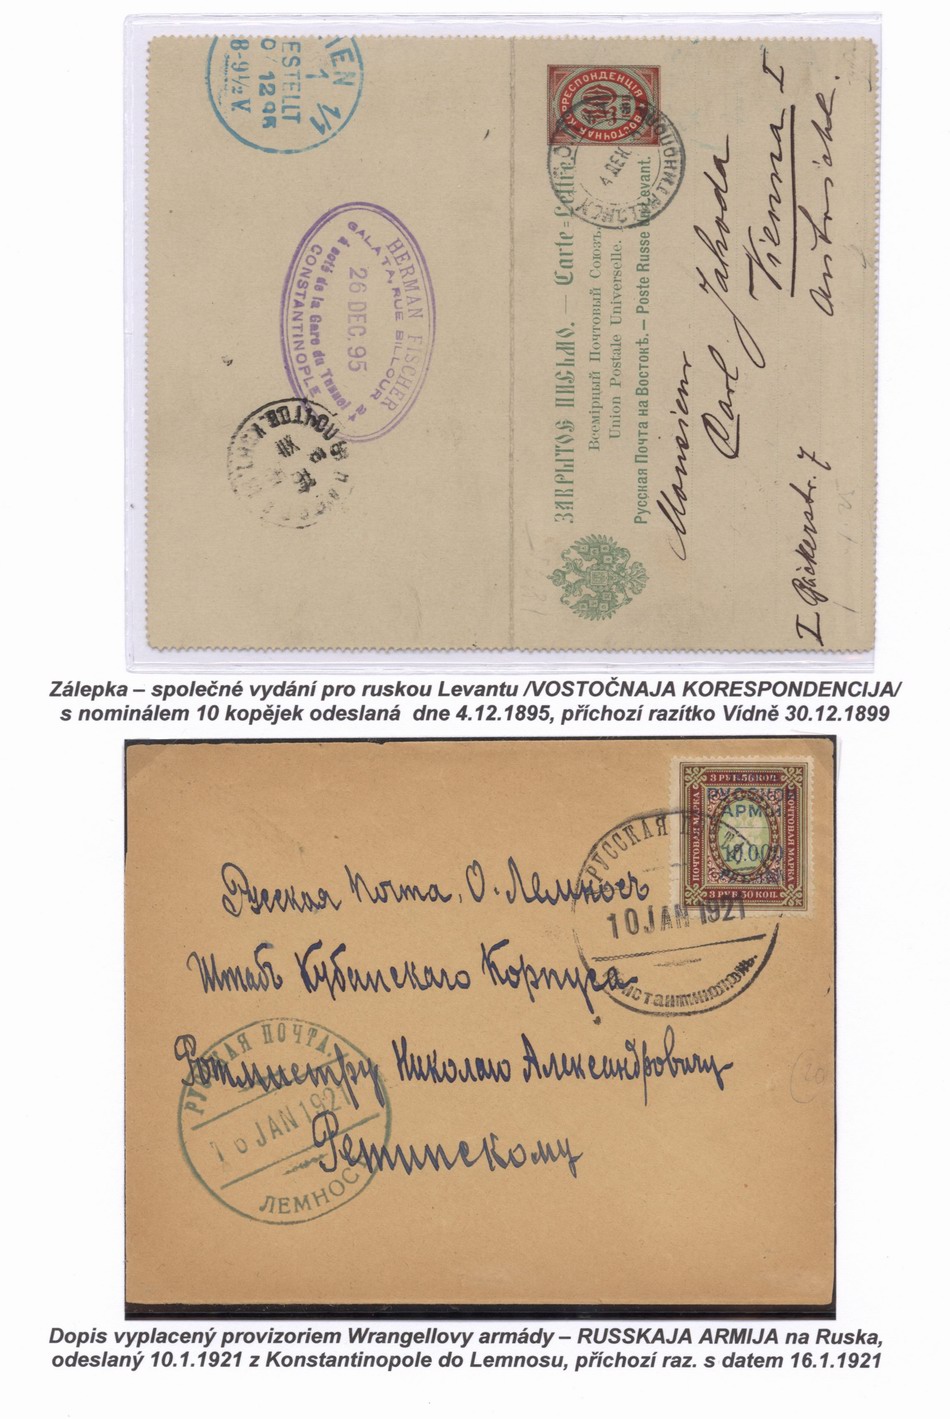 IEN 1/1
1
ESTELLT
0 12 95
8-9½V
HERMAN FISCHER
GALATA, RUE BILLOUR
26 DEC. 95
à coté de la Gare du Tunnel
CONSTANTINOPLE
ВОСТОЧНАЯ КОРРЕСПОНДЕНЦІЯ
4 ДЕК
ЗАКРЫТОЕ ПИСЬМО. — Carte=Lettre
Всемірный Почтовый Союзъ.
Union Postale Universelle.
Русская Почта на Востокѣ. — Poste Russe du Levant.
Monsieur
Karl Jahoda
Vienna I
Autriche.
I Bäckerstr. 7
Zálepka – společné vydání pro ruskou Levantu /VOSTOČNAJA KORESPONDENCIJA/
s nominálem 10 kopějek odeslaná dne 4.12.1895, příchozí razítko Vídně 30.12.1899
3 РУБ. 50 КОП.
ПОЧТОВАЯ МАРКА
ПОЧТОВАЯ МАРКА
АРМІЯ
10.000
3 РУБ. 50 КОП.
РУССКАЯ
10 JAN 1921
Русская Почта. О. Лемносъ
Штабъ Кубанскаго Корпуса
Ротмистру Николаю Александровичу
Ретинскому
РУССКАЯ ПОЧТА.
16 JAN 1921
ЛЕМНОСЪ
20
Dopis vyplacený provizoriem Wrangellovy armády – RUSSKAJA ARMIJA na Ruska,
odeslaný 10.1.1921 z Konstantinopole do Lemnosu, příchozí raz. s datem 16.1.1921